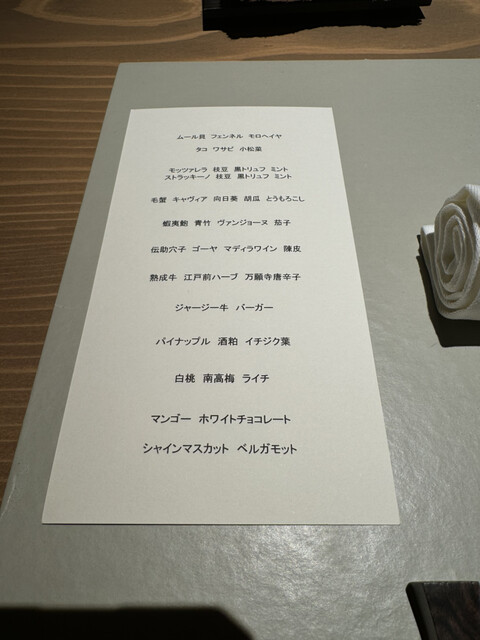 ムール貝 フェンネル モロヘイヤ
タコ ワサビ 小松菜
モッツァレラ 枝豆 黒トリュフ ミント
ストラッキーノ 枝豆 黒トリュフ ミント
毛蟹 キャヴィア 向日葵 胡瓜 とうもろこし
蝦夷鮑 青竹 ヴァンジョーヌ 茄子
伝助穴子 ゴーヤ マディラワイン 陳皮
熟成牛 江戸前ハーブ 万願寺唐辛子
ジャージー牛 バーガー
パイナップル 酒粕 イチジク葉
白桃 南高梅 ライチ
マンゴー ホワイトチョコレート
シャインマスカット ベルガモット